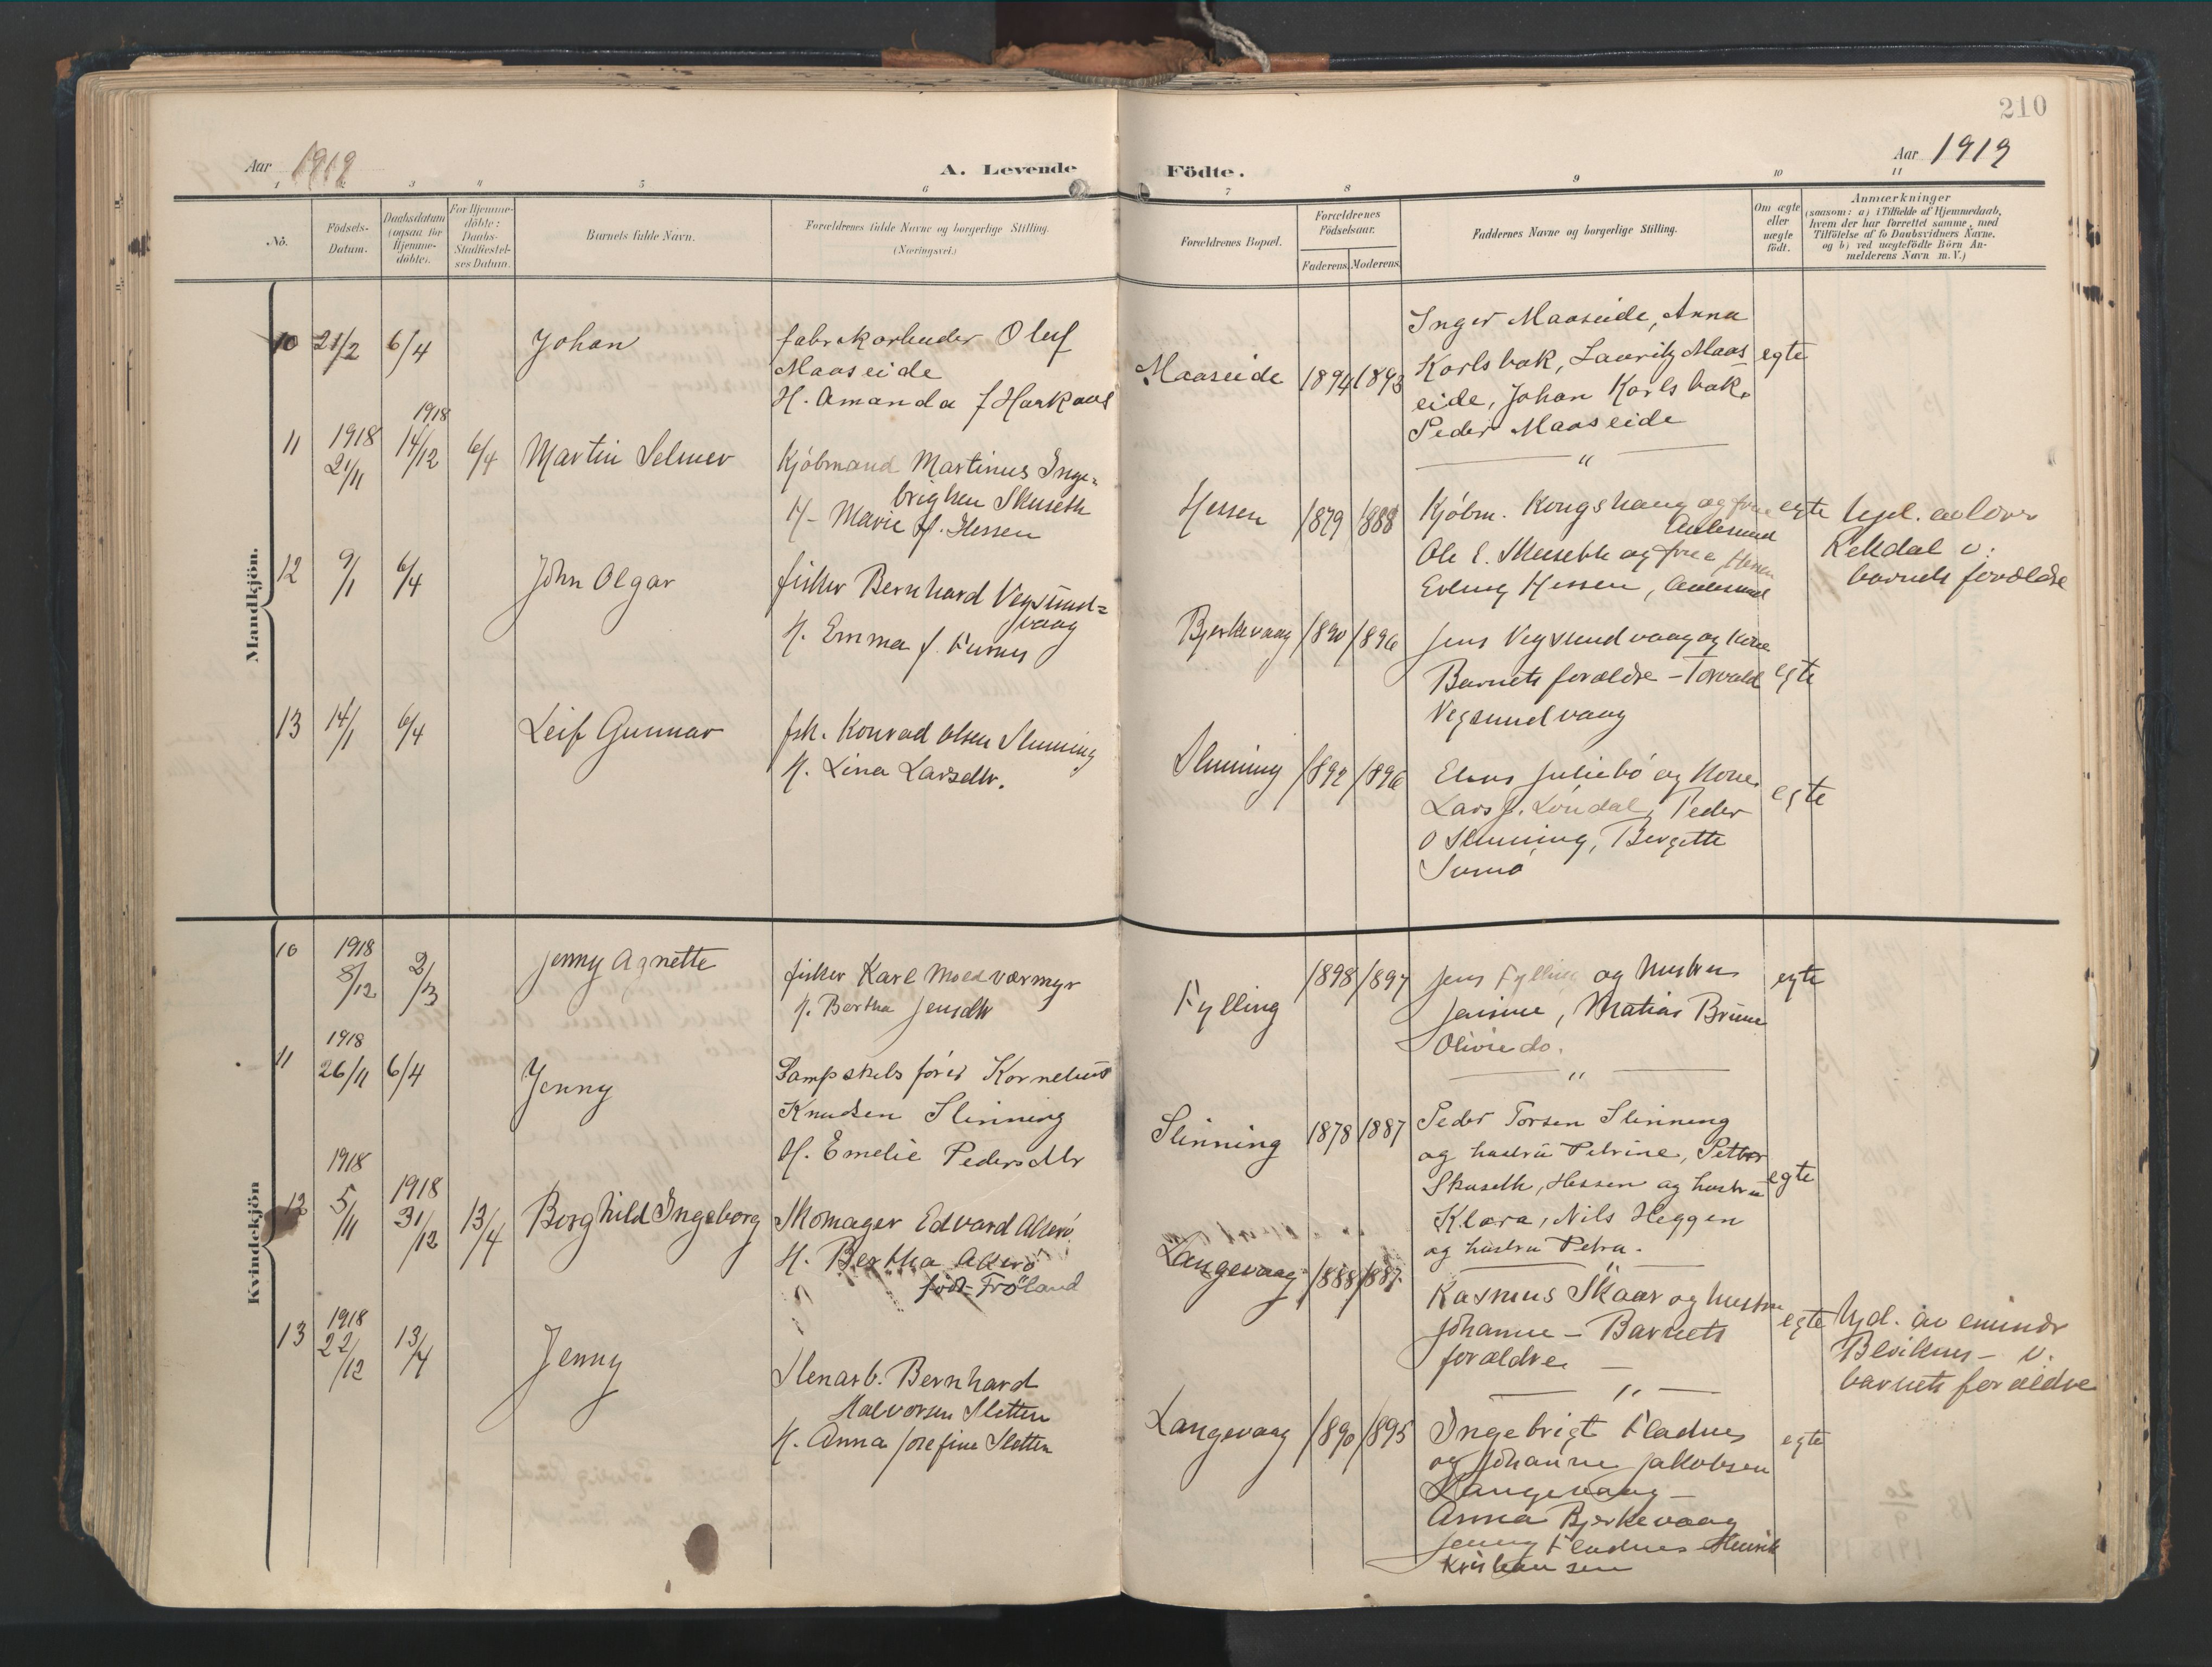 210
Aar 1919
A. Levende
Födte.
Aar 1919
1 2 3 4 5 6 7 8 9 10 11
No.
Födsels-
Datum.
Daabsdatum
(ogsaa for
Hjemme-
döbte).
For Hjemme-
döbte:
Daabs-
Stadfæstel-
ses Datum.
Barnets fulde Navn.
Forældrenes fulde Navne og borgerlige Stilling.
(Næringsvei.)
Forældrenes Bopæl.
Forældrenes
Födselsaar.
Faderens. Moderens.
Faddernes Navne og borgerlige Stilling.
Om ægte
eller
uægte
födt.
Anmærkninger
(saasom: a) i Tilfælde af Hjemmedaab,
hvem der har forrettet samme, med
Tilföielse af to Daabsvidners Navne,
og b) ved uægtefödte Börn An-
melderens Navn m. V.)
Mandkjön.
10 21/2 6/4 Johan
fabrikarbeider Oluf
Maaseide
H. Amanda f Harkaas
Maaseide 1894 1893
Inger Maaseide, Anna
Karlsbak, Lauritz Maas
eide, Johan Karlsbak.
Peder Maaseide
egte
"
11 1918 21/11 1918 14/12 6/4 Martin Selmer
Kjöbmand Martinus Inge-
brigtsen Skuseth
H- Marie f. Hessen
Hessen 1879 1888
Kjöbm. Kongshaug og frue
Aalesund
Ole E. Skuseth og frue Hessen
Erling Hessen, Aalesund
egte
Hjd. av lærer
Rekdal v.
barnets forældre
12 9/1 6/4 John Olgar
fisker Bernhard Vegsund=
vaag
H. Emma f. Furnes
Bjerkevaag 1890 1896
Jens Vegsundvaag og kone
Barnets forældre - Torvald
Vegsundvaag
egte
13 14/1 6/4 Leif Gunnar
fsk. Konrad Olsen Slinning
H. Lina Larsdtr.
Slinning 1892 1896
Juliebö og Kone
Lars J. Löndal, Peder
O Slinning, Bergitte
Sunö
egte
Kvindekjön
10 1918 8/12 2/3 Jenny Agnette
fisker Karl Moldværmyr
H. Bertha Jensdtr
Fylling 1898 1897
Jens Fylling og hustru
Jensine, Matias Brune
Olivie do.
egte
"
11 1918 26/11 6/4 Jenny
Dampskibsförer Kornelius
Knudsen Slinning
H. Emelie Pedersdtr
Slinning 1878 1887
Peder Torsen Slinning
og hustru Petrine, Petter
Skuseth, Hessen og hustru
Klara, Nils Heggen
og hustru Petra.
egte
"
12 1918 5/11 1918 31/12 13/4 Borghild Ingeborg
Skomager Edvard Akerö
H. Bertha Akerö
födt Fröland
Langevaag 1888 1887
Rasmus Skaar og hustru
Johanne - Barnets
forældre -
egte
Hjd. av
v.
barnets forældre
"
13 1918 22/12 13/4 Jenny
Stenarb. Bernhard
Halvorsen Sletten
H. Anna Josefine Sletten
Langevaag 1890 1895
Ingebrigt Fladnes
og Johanne Jakobsen
Langevaag -
Anna Bjerkevaag
Jenny Fladnes Henrik
Kristiansen
egte